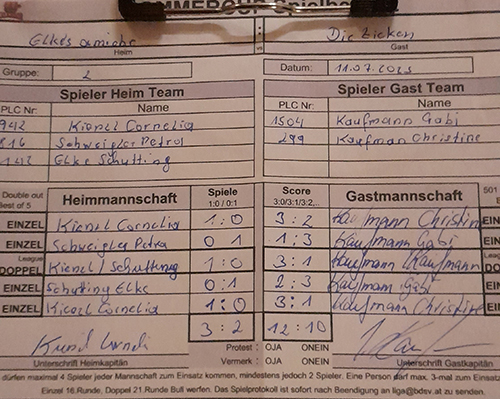 Spielbe
Elkes amiche Die Zicken
Heim vs Gast
Gruppe: 2 Datum: 11.07.2023
Spieler Heim Team Spieler Gast Team
PLC Nr: Name PLC Nr: Name
942 Kienzl Cornelia 1504 Kaufmann Gabi
816 Schweigler Petra 299 Kaufman Christine
142 Elke Schutting
Double out Best of 5 Heimmannschaft Spiele 1:0 / 0:1 Score 3:0/3:1/3:2,.. Gastmannschaft 501
EINZEL Kienzl Cornelia 1:0 3:2 Kaufmann Christine EIN
EINZEL Schweigler Petra 0 1 1:3 Kaufmann Gabi EIN
League DOPPEL Kienzl / Schutting 1:0 3:1 Kaufmann / Kaufmann
EINZEL Schutting Elke 0:1 2:3 Kaufmann Gabi EIN
EINZEL Kienzl Cornelia 1:0 3:1 Kaufmann Christine EIN
3:2 12:10
Protest : OJA ONEIN
Unterschrift Heimkapitän Vermerk : OJA ONEIN Unterschrift Gastkapitän
dürfen maximal 4 Spieler jeder Mannschaft zum Einsatz kommen, mindestens jedoch 2 Spieler. Eine Person darf max. 3-mal zum Einsatz
Einzel 16.Runde, Doppel 21.Runde Bull werfen. Das Spielprotokoll ist sofort nach Beendigung an liga@bdsv.at zu senden.